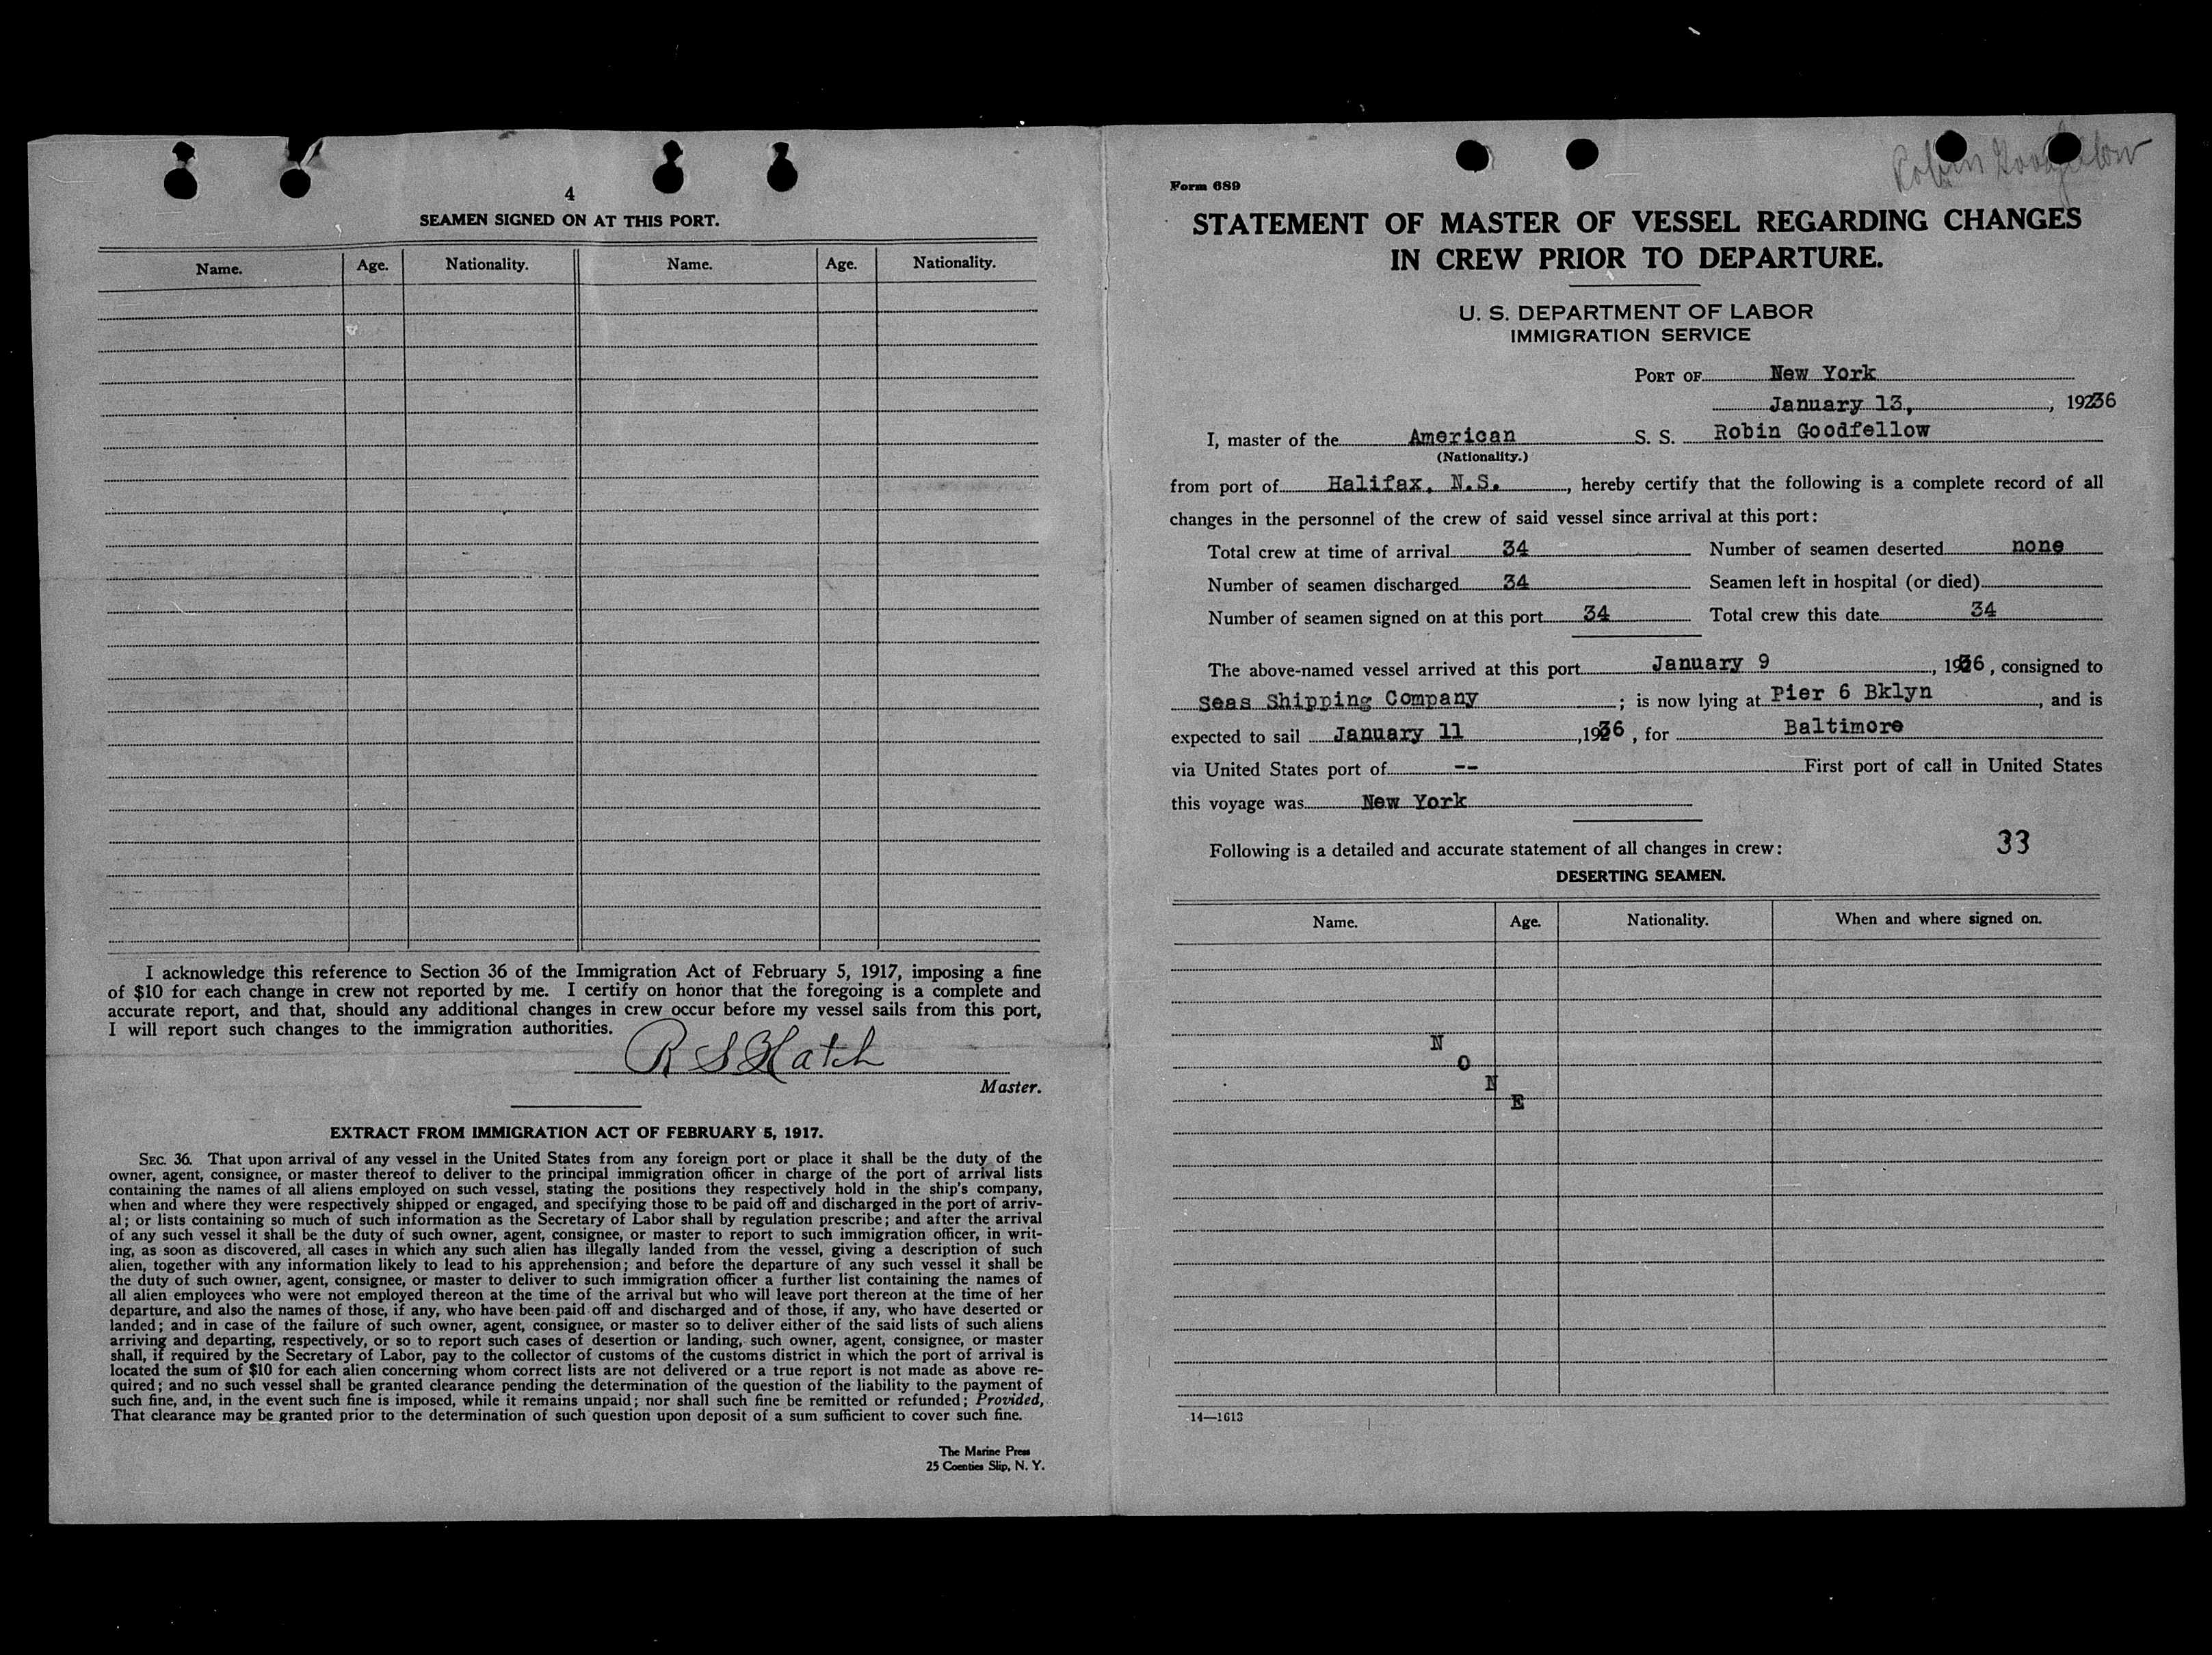 4
SEAMEN SIGNED ON AT THIS PORT.
Name. Age. Nationality. Name. Age. Nationality.
I acknowledge this reference to Section 36 of the Immigration Act of February 5, 1917, imposing a fine
of $10 for each change in crew not reported by me. I certify on honor that the foregoing is a complete and
accurate report, and that, should any additional changes in crew occur before my vessel sails from this port,
I will report such changes to the immigration authorities.
R S Hatch
Master.
EXTRACT FROM IMMIGRATION ACT OF FEBRUARY 5, 1917.
SEC. 36. That upon arrival of any vessel in the United States from any foreign port or place it shall be the duty of the
owner, agent, consignee, or master thereof to deliver to the principal immigration officer in charge of the port of arrival lists
containing the names of all aliens employed on such vessel, stating the positions they respectively hold in the ship's company,
when and where they were respectively shipped or engaged, and specifying those to be paid off and discharged in the port of arriv-
al; or lists containing so much of such information as the Secretary of Labor shall by regulation prescribe; and after the arrival
of any such vessel it shall be the duty of such owner, agent, consignee, or master to report to such immigration officer, in writ-
ing, as soon as discovered, all cases in which any such alien has illegally landed from the vessel, giving a description of such
alien, together with any information likely to lead to his apprehension; and before the departure of any such vessel it shall be
the duty of such owner, agent, consignee, or master to deliver to such immigration officer a further list containing the names of
all alien employees who were not employed thereon at the time of the arrival but who will leave port thereon at the time of her
departure, and also the names of those, if any, who have been paid off and discharged and of those, if any, who have deserted or
landed; and in case of the failure of such owner, agent, consignee, or master so to deliver either of the said lists of such aliens
arriving and departing, respectively, or so to report such cases of desertion or landing, such owner, agent, consignee, or master
shall, if required by the Secretary of Labor, pay to the collector of customs of the customs district in which the port of arrival is
located the sum of $10 for each alien concerning whom correct lists are not delivered or a true report is not made as above re-
quired; and no such vessel shall be granted clearance pending the determination of the question of the liability to the payment of
such fine, and, in the event such fine is imposed, while it remains unpaid; nor shall such fine be remitted or refunded; Provided,
That clearance may be granted prior to the determination of such question upon deposit of a sum sufficient to cover such fine.
The Marine Press
25 Coenties Slip, N. Y.
Robin Goodfellow
Form 689
STATEMENT OF MASTER OF VESSEL REGARDING CHANGES
IN CREW PRIOR TO DEPARTURE.
U. S. DEPARTMENT OF LABOR
IMMIGRATION SERVICE
PORT OF New York
January 13, , 1936
I, master of the American S. S. Robin Goodfellow
(Nationality.)
from port of Halifax, N.S. , hereby certify that the following is a complete record of all
changes in the personnel of the crew of said vessel since arrival at this port:
Total crew at time of arrival 34 Number of seamen deserted none
Number of seamen discharged 34 Seamen left in hospital (or died)
Number of seamen signed on at this port 34 Total crew this date 34
The above-named vessel arrived at this port January 9 , 1936, consigned to
Seas Shipping Company ; is now lying at Pier 6 Bklyn , and is
expected to sail January 11 ,1936, for Baltimore
via United States port of -- First port of call in United States
this voyage was New York
Following is a detailed and accurate statement of all changes in crew: 33
DESERTING SEAMEN.
Name. Age. Nationality. When and where signed on.
N
O
N
E
14—1613